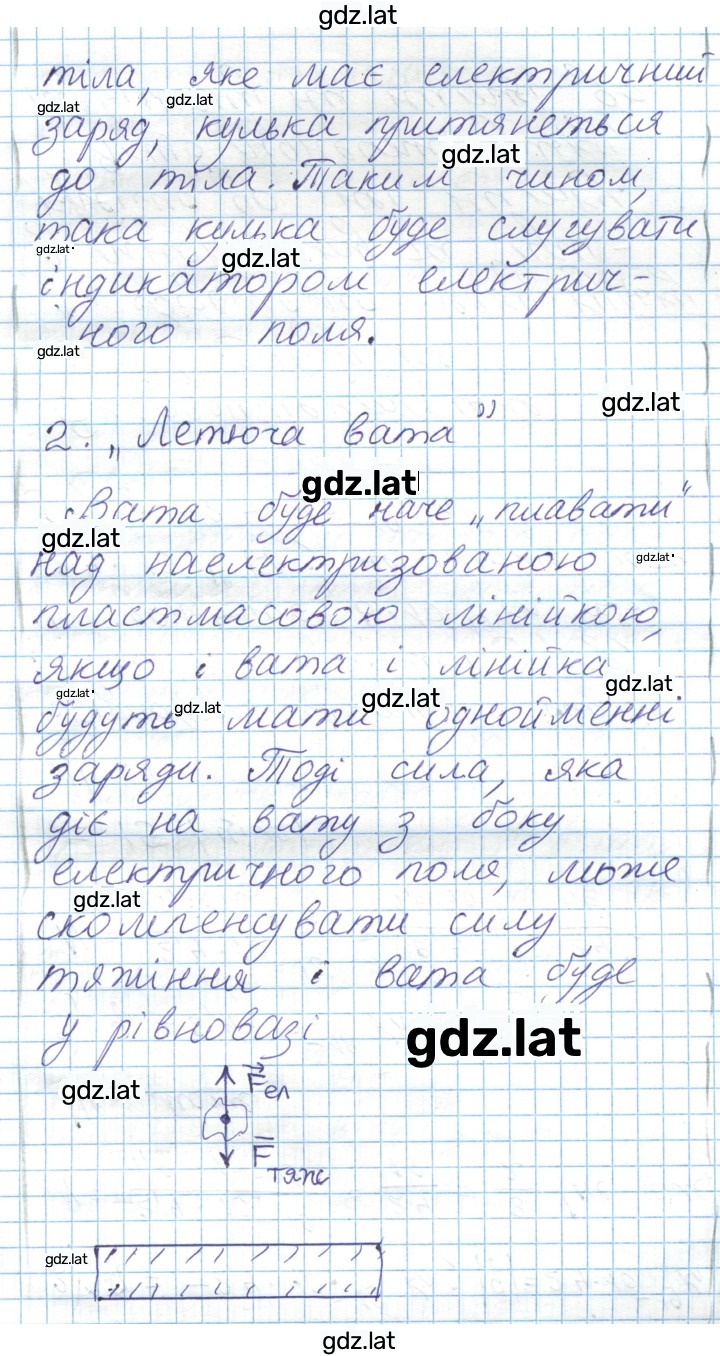 gdz.lat
тіла, яке має електричний
gdz.lat gdz.lat
заряд, кулька притянеться
gdz.lat
до тіла. Таким чином,
така кулька буде слугувати
gdz.lat gdz.lat
індикатором електрич-
ного поля.
gdz.lat
gdz.lat
2. „Летюча вата"
gdz.lat
Вата буде наче „плавати"
gdz.lat
над наелектризованою gdz.lat
пластмасовою лінійкою,
якщо і вата і лінійка
gdz.lat gdz.lat gdz.lat gdz.lat
будуть мати однойменні
заряди. Тоді сила, яка
діє на вату з боку
електричного поля, може
gdz.lat
скомпенсувати силу
тяжіння і вата буде
у рівновазі
gdz.lat
gdz.lat
F ел
F тяж
gdz.lat
gdz.lat